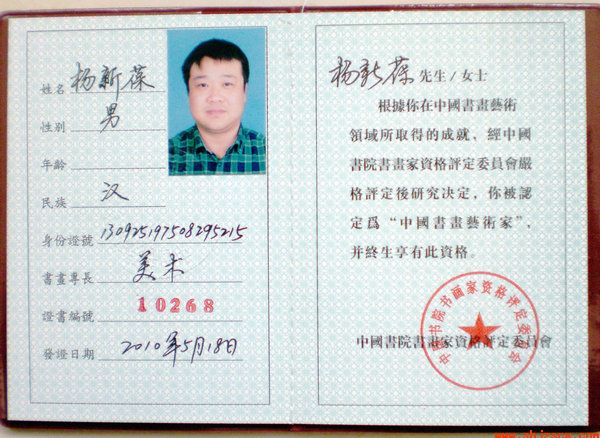 姓名 杨新葆
性别 男
年齡
民族 汉
身份證號 130925197508295215
書畫專長 美术
證書編號 10268
發證日期 2010年5月18日
杨新葆 先生/女士
根據你在中國書畫藝術
領域所取得的成就、經中國
書院書畫家資格評定委員會嚴
格評定後研究决定，你被認
定爲“中國書畫藝術家”，
并終生享有此資格。
中国书院书画家资格评定委员会
中國書院書畫家資格評定委員會